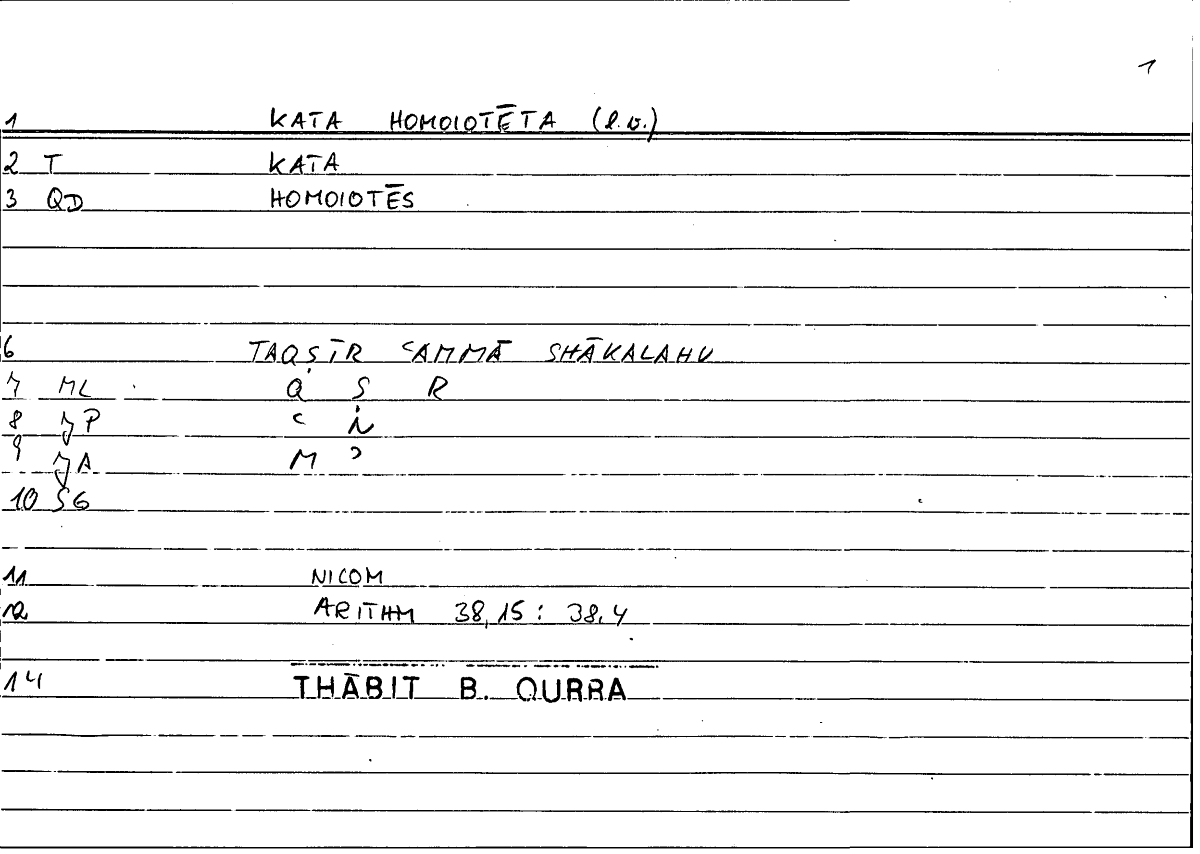 1
1 KATA HOMOIOTĒTA (l.v.)
2 T KATA
3 QD HOMOIOTĒS
6 TAQṢĪR ʿAMMĀ SHĀKALAHU
7 ML Q Ṣ R
8 JP ʿ N
9 JA M ʾ
10 SG
11 NICOM
12 ARITHM 38,15 : 38,4
14 THĀBIT B. QURRA